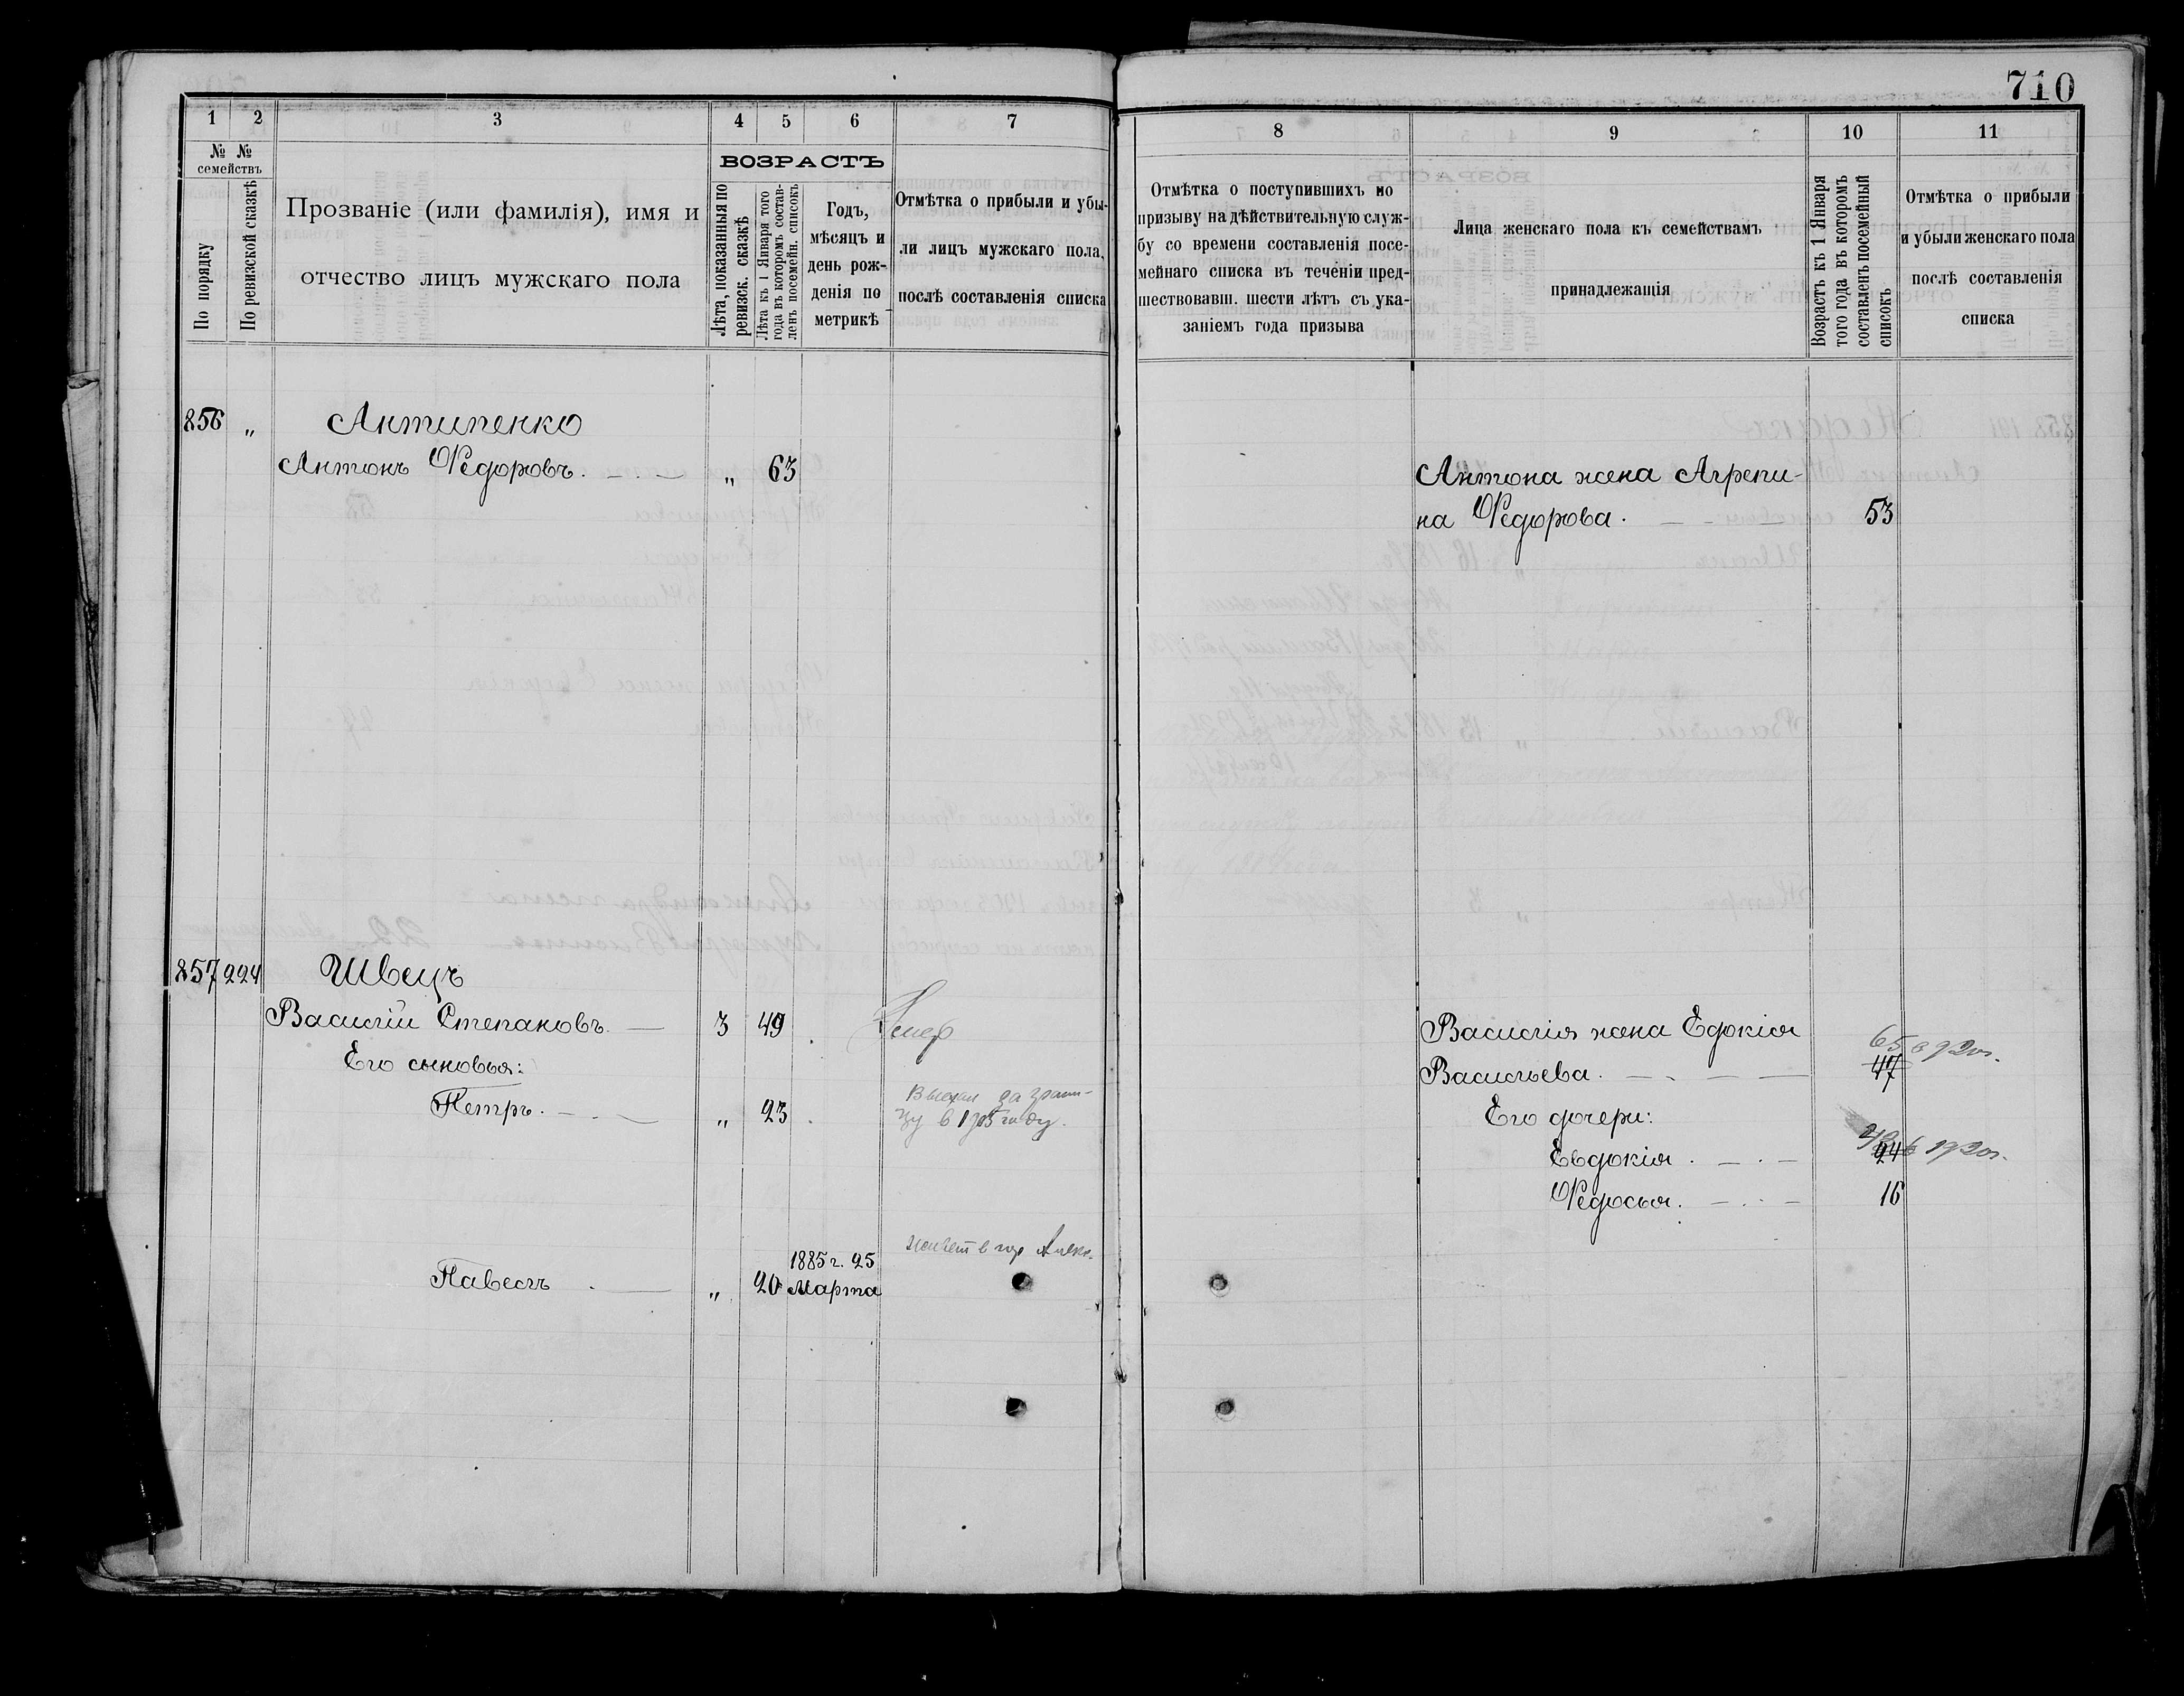 710
1 2 3 4 5 6 7
№ № семействъ
По порядку
По ревизской сказкѣ
Прозваніе (или фамилія), имя и
отчество лицъ мужскаго пола
ВОЗРАСТЪ
Лѣта, показанныя по
ревизск. сказкѣ
Лѣта къ 1 Января того
года въ которомъ состав-
ленъ посемейн. списокъ
Годъ,
мѣсяцъ и
день рож-
денія по
метрикѣ
Отмѣтка о прибыли и убы-
ли лицъ мужскаго пола,
послѣ составленія списка
8 9 10 11
Отмѣтка о поступившихъ по
призыву на дѣйствительную служ-
бу со времени составленія посе-
мейнаго списка въ теченіи пред-
шествовавш. шести лѣтъ съ ука-
заніемъ года призыва
Лица женскаго пола къ семействамъ
принадлежащія
Возрастъ къ 1 Января
того года въ которомъ
составленъ посемейный
списокъ
Отмѣтка о прибыли
и убыли женскаго пола
послѣ составленія
списка
856 „ Антипенко
Антонъ Ѳедоровъ. „ 63
Антона жена Агрепи-
на Ѳедорова. 53
857 224 Швецъ
Василій Степановъ. 3 49 Умер
Его сыновья:
Петръ. „ 23 Выехал за грани-
цу в 1905 году.
Живет в гор Алекс.
1885 г. 25
Павелъ „ 20 Марта
Василія жена Едокія
65 в 920г.
Васильева. 47
Его дочери:
Евдокія. 24 в 1920г.
Ѳедосья. 16